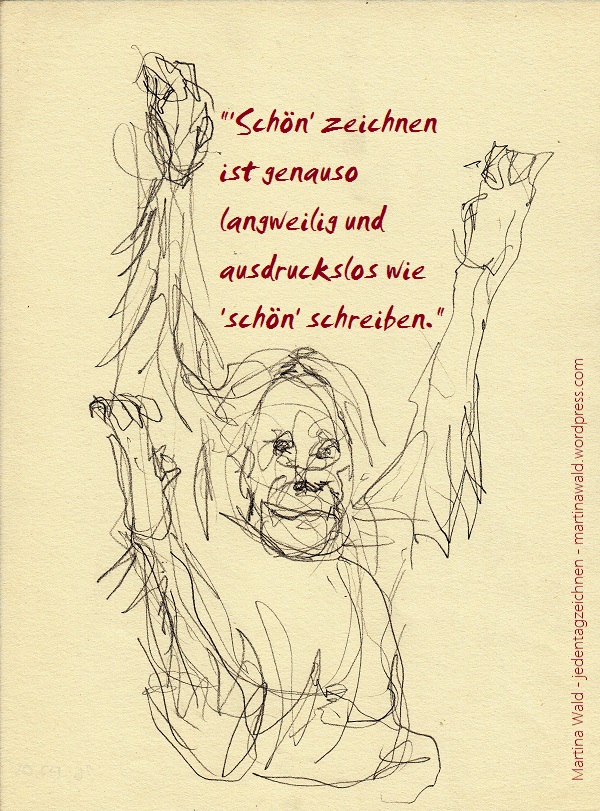 "'Schön' zeichnen
ist genauso
langweilig und
ausdruckslos wie
'schön' schreiben."
Martina Wald - jedentagzeichnen - martinawald.wordpress.com